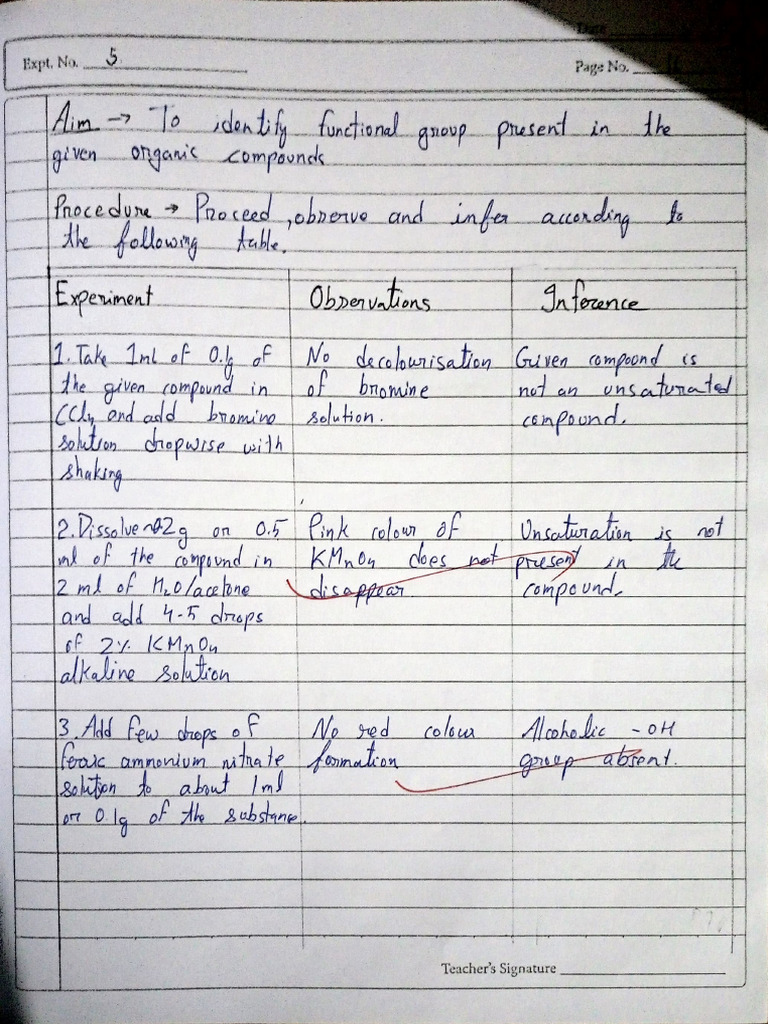 Date
Expt. No. 5
Page No.
Aim → To identify functional group present in the
given organic compounds
Procedure → Proceed, observe and infer according to
the following table.
Experiment
Observations
Inference
1. Take 1ml of 0.1g of
the given compound in
CCl4 and add bromine
solution dropwise with
shaking
No decolourisation
of bromine
solution.
Given compound is
not an unsaturated
compound.
2. Dissolve 0.2g or 0.5
ml of the compound in
2 ml of H2O/acetone
and add 4-5 drops
of 2% KMnO4
alkaline solution
Pink colour of
KMnO4 does not
disappear
Unsaturation is not
present in the
compound.
3. Add few drops of
ammonium nitrate
solution to about 1ml
or 0.1g of the substance.
No red colour
formation
Alcoholic -OH
group absent.
Teacher's Signature